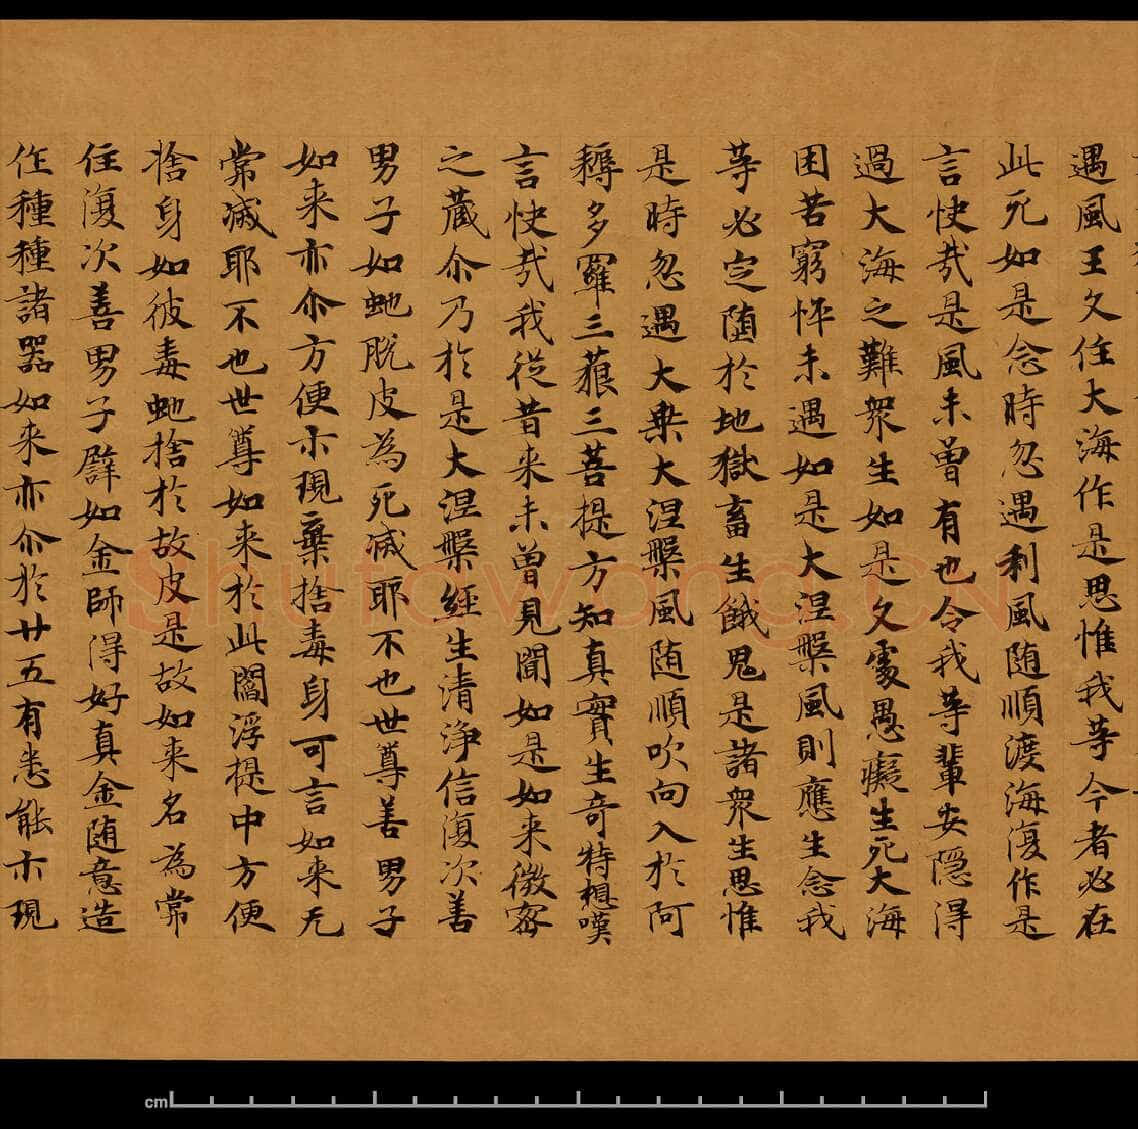 遇風王久住大海作是思惟我等今者必在
此死如是念時忽遇利風随順渡海復作是
言快哉是風未曾有也令我等輩安隱得
過大海之難衆生如是久處愚癡生死大海
困苦窮悴未遇如是大涅槃風則應生念我
等必定墮於地獄畜生餓鬼是諸衆生思惟
是時忽遇大乗大涅槃風随順吹向入於阿
耨多羅三藐三菩提方知真實生奇特想嘆
言快哉我従昔来未曽見聞如是如来微密
之蔵尒乃於是大涅槃經生清浄信復次善
男子如虵脱皮為死滅耶不也世尊善男子
如来亦尒方便示現棄捨毒身可言如来无
常滅耶不也世尊如来於此閻浮提中方便
捨身如彼毒虵捨於故皮是故如来名為常
住復次善男子譬如金師得好真金随意造
作種種諸器如来亦尒於廿五有悉能示現
Shufawang.CN
cm